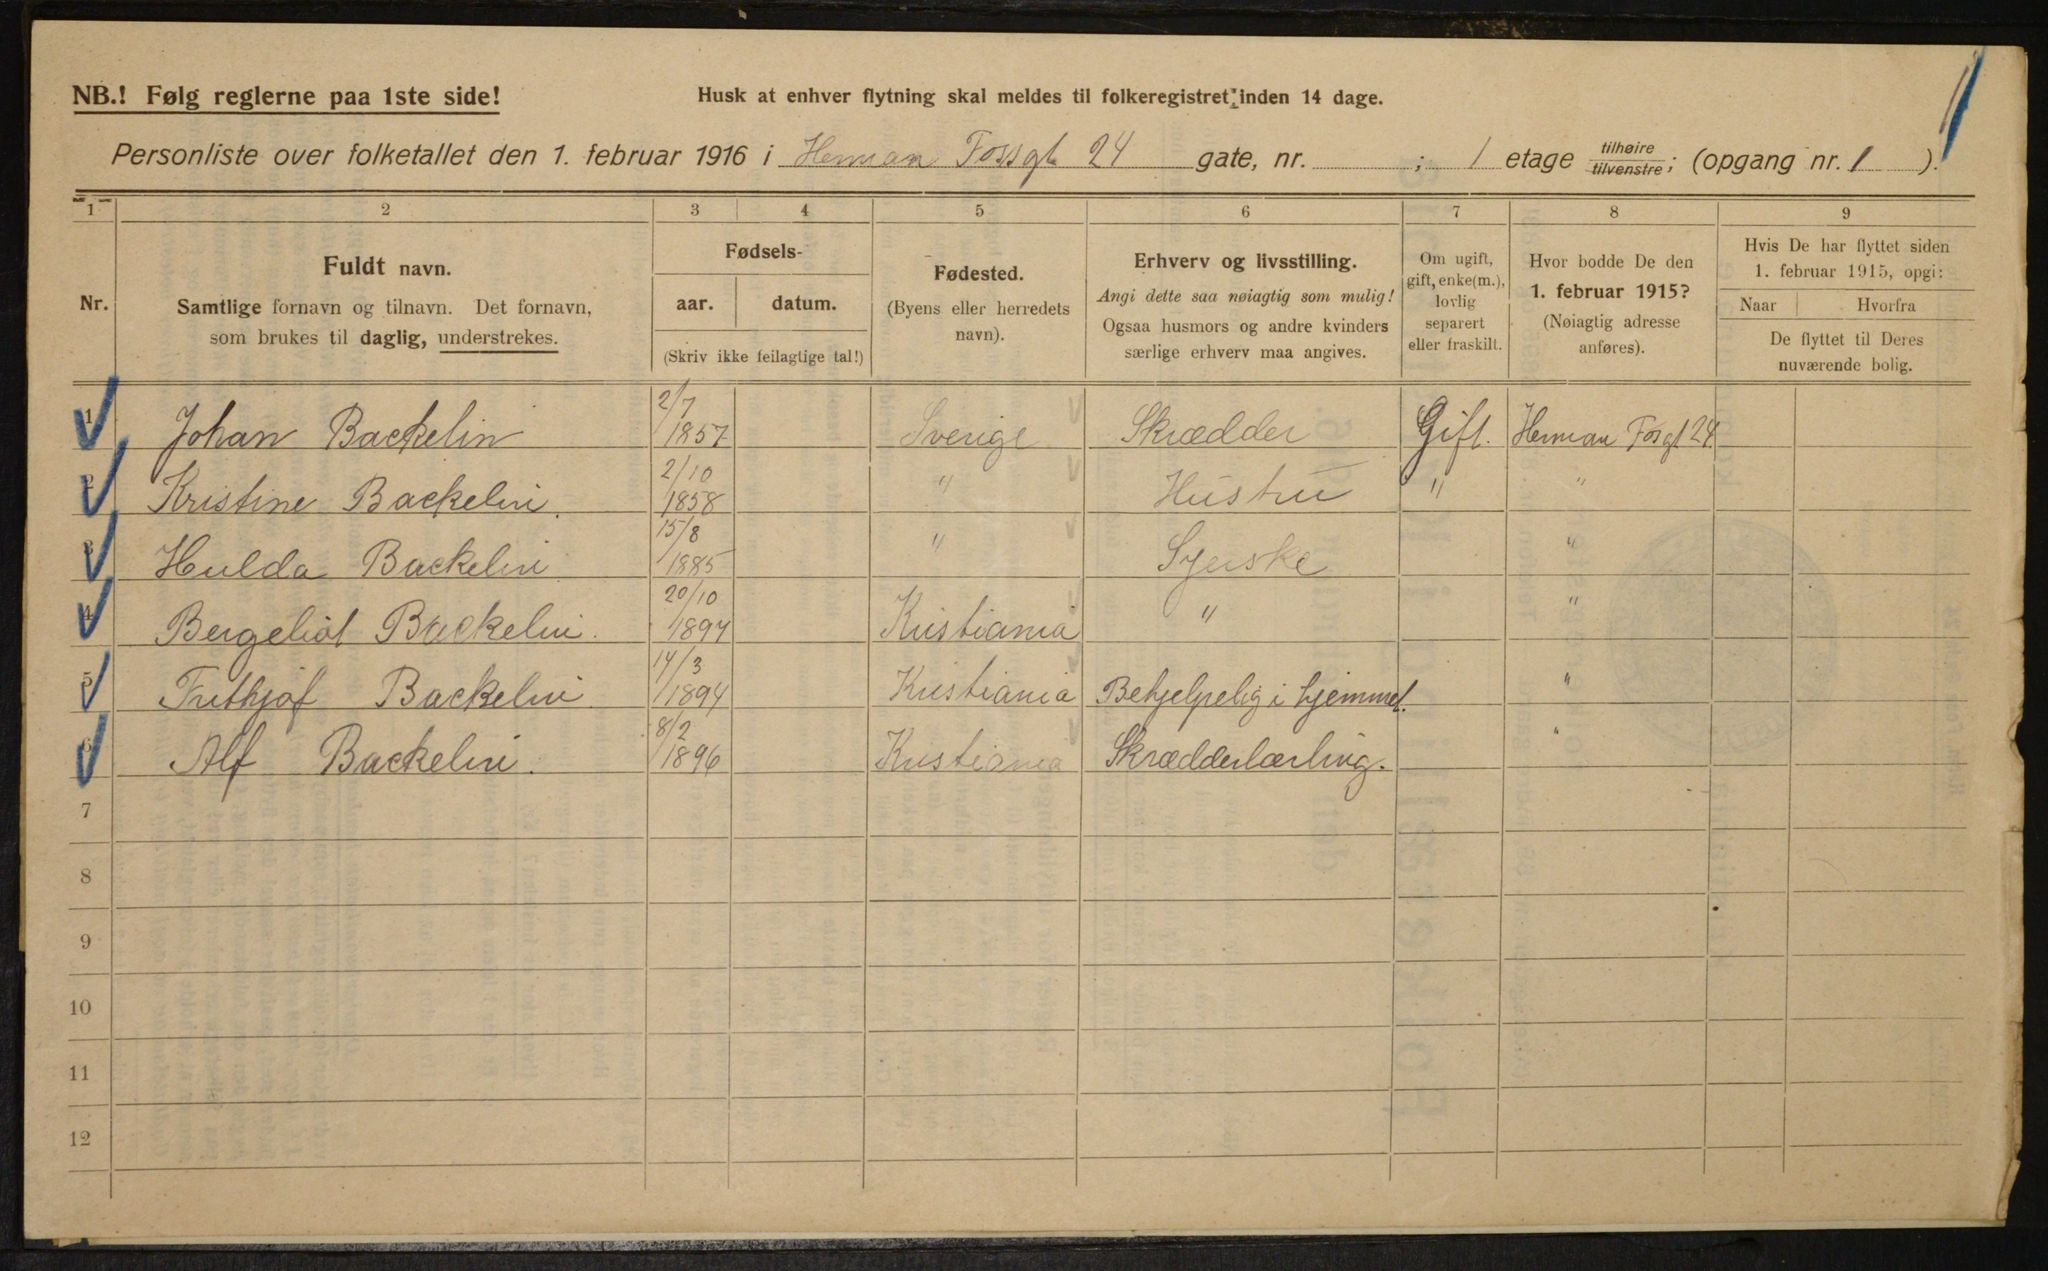 NB.! Følg reglerne paa 1ste side! Husk at enhver flytning skal meldes til folkeregistret inden 14 dage.
Personliste over folketallet den 1. februar 1916 i Herman Fossgt 24 gate, nr. ; 1 etage tilhøire/tilvenstre; (opgang nr. 1 ).
1 2 3 4 5 6 7 8 9
Nr.
Fuldt navn.
Samtlige fornavn og tilnavn. Det fornavn,
som brukes til daglig, understrekes.
Fødsels-
aar. datum.
(Skriv ikke feilagtige tal!)
Fødested.
(Byens eller herredets
navn).
Erhverv og livsstilling.
Angi dette saa nøiagtig som mulig!
Ogsaa husmors og andre kvinders
særlige erhverv maa angives.
Om ugift,
gift, enke(m.),
lovlig
separert
eller fraskilt.
Hvor bodde De den
1. februar 1915?
(Nøiagtig adresse
anføres).
Hvis De har flyttet siden
1. februar 1915, opgi:
Naar Hvorfra
De flyttet til Deres
nuværende bolig.
1 Johan Backelin 2/7 1857 Sverige Skrædder Gift. Herman Fosgt 24
2 Kristine Backelin. 2/10 1858 " Hustru " "
3 Hulda Backelin 15/8 1885 " Syerske "
4 Bergeliot Backelin. 20/10 1897 Kristiania " "
5 Frithjof Backelin 14/3 1894 Kristiania Behjelpelig i hjemmet. "
6 Alf Backelin. 8/2 1896 Kristiania Skrædderlærling. "
7
8
9
10
11
12